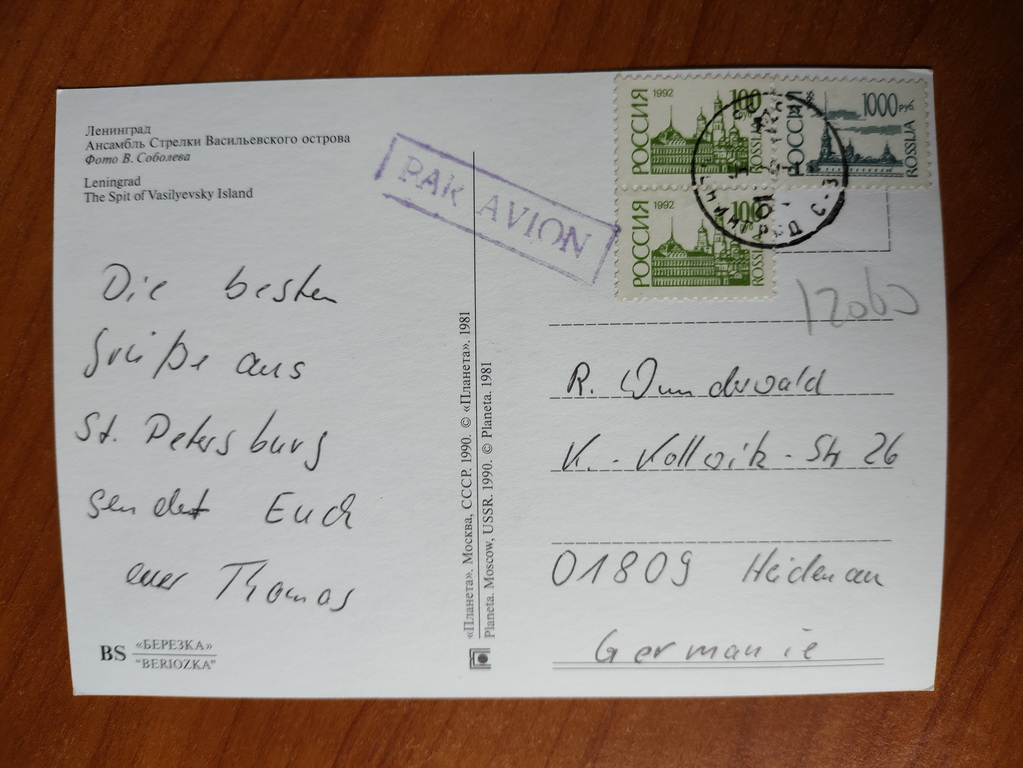 Ленинград
Ансамбль Стрелки Васильевского острова
Фото В. Соболева
Leningrad
The Spit of Vasilyevsky Island
PAR AVION
РОССИЯ 1992 100 ROSSIJA
РОССИЯ 1000 РУБ. ROSSIJA
РОССИЯ 1992 100 ROSSIJA
Die besten
Grüße aus
St. Petersburg
sendet Euch
euer Thomas
BS «БЕРЕЗКА»
"BERIOZKA"
«Планета». Москва, СССР. 1990. © «Планета». 1981
Planeta. Moscow, USSR. 1990. © Planeta. 1981
R. Wunderwald
K.-Kollwitz-Str 26
01809 Heidenau
Germanie